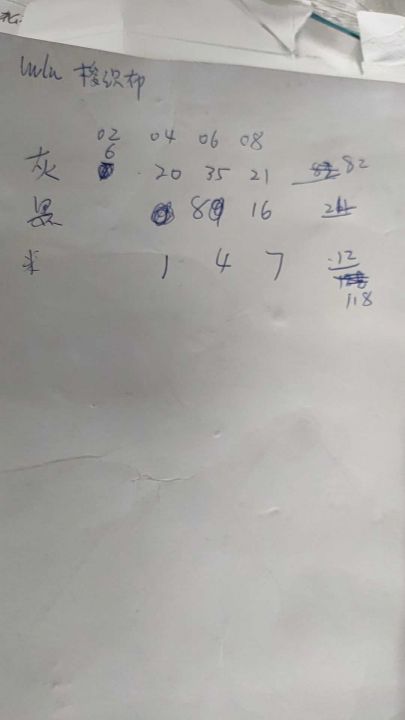 lulu 梭织布
02 04 06 08
6
灰 20 35 21 82
黑 8 16 24
米 1 4 7 12
118